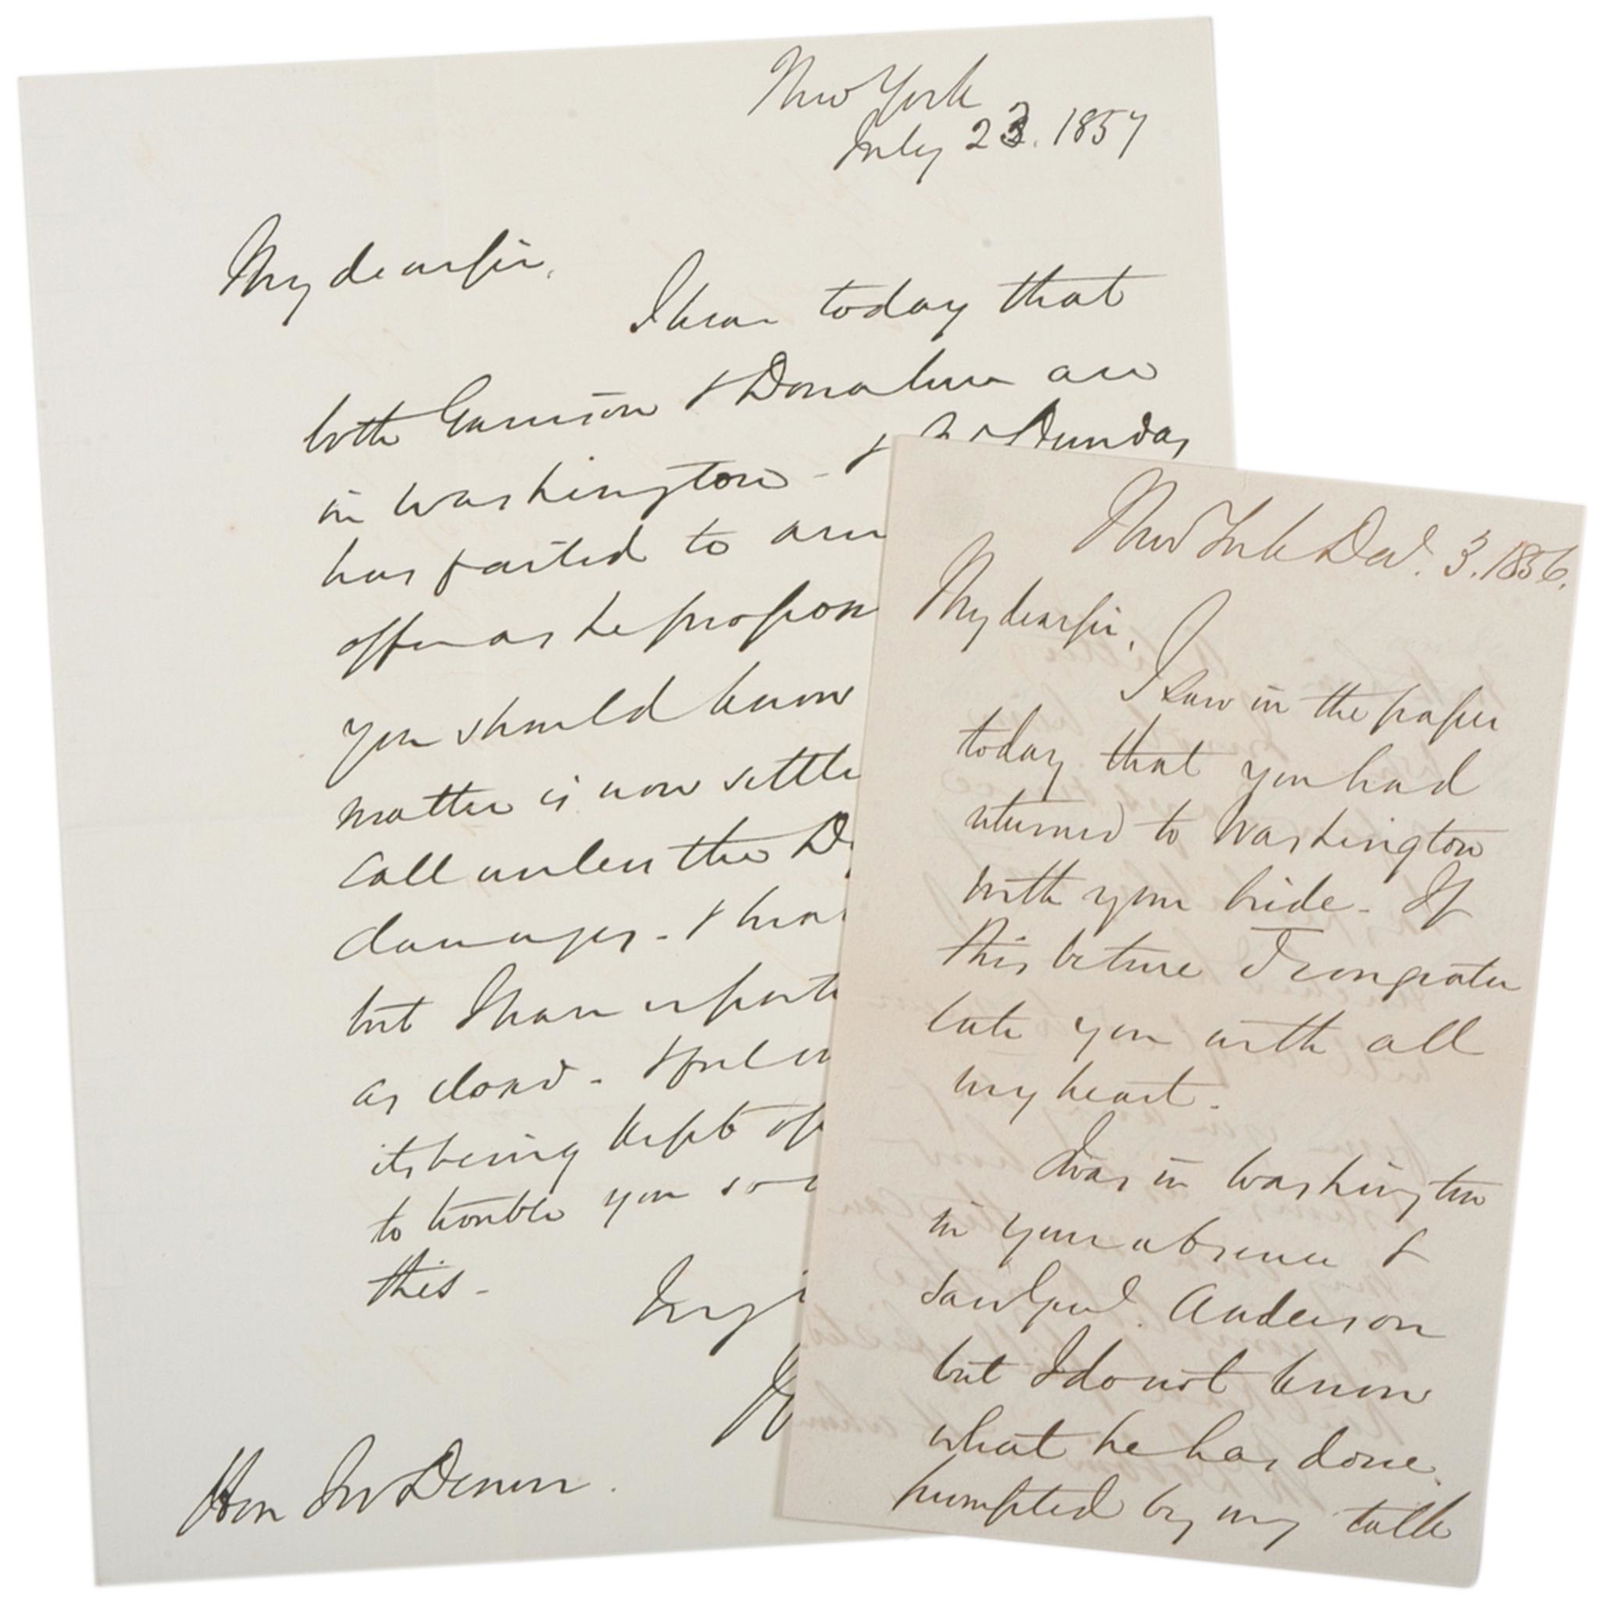 New York
July 23. 1857
My dear sir,
I hear today that
both Garrison & Donahue are
in Washington - & Dunday
has failed to
offer as he
you should know
matter is now
call unless the
damages - &
but I have
as - 
its being kept
to trouble you
this -
Hon Denver.
New York Dec. 3. 1856.
My dear sir,
I saw in the paper
today that you had
returned to Washington
with your bride. If
this be true I congratu
late you with all
my heart.
I was in Washington
in your absence &
saw Genl. Anderson
but I do not know
what he has done.
prompted by my talk